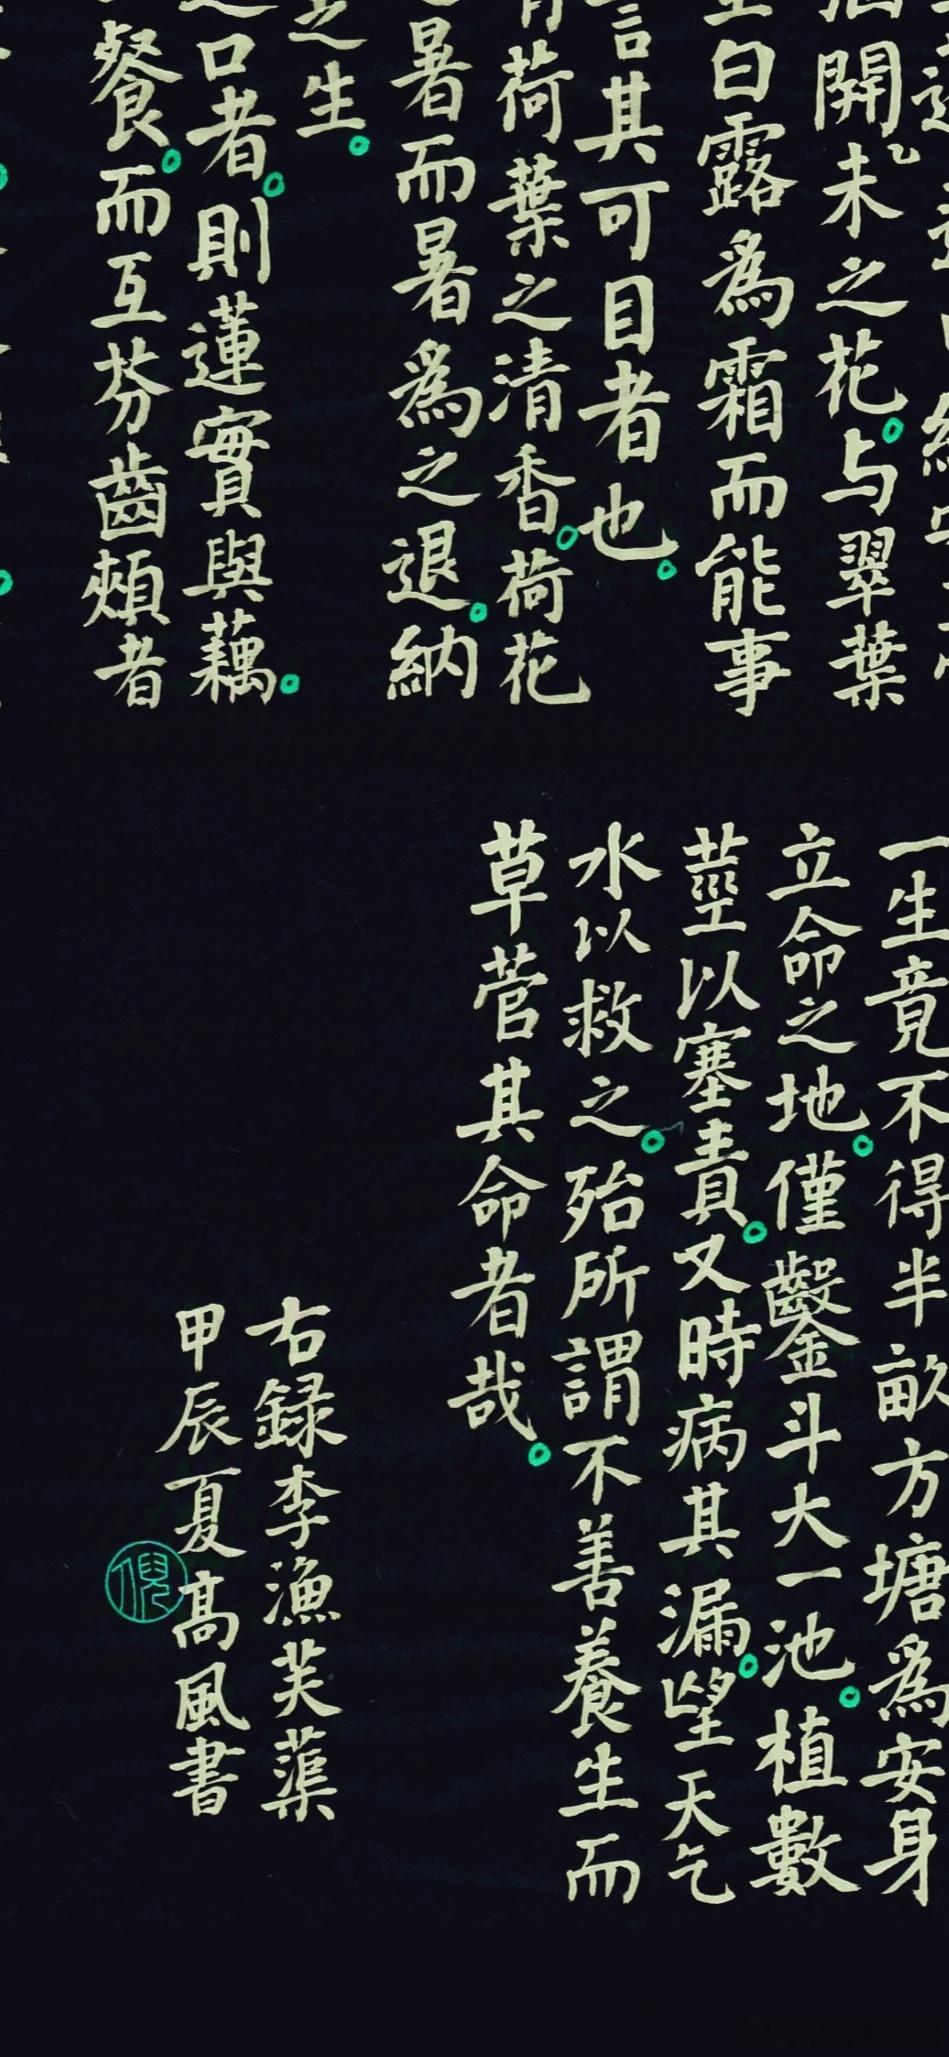 開未之花。与翠葉
白露為霜而能事
言其可目者也。
荷葉之清香。荷花
暑而暑為之退。納
之生。
口者。則蓮實與藕。
餐。而互芬齒頰者
一生竟不得半畝方塘為安身
立命之地。僅鑿斗大一池。植數
莖以塞責。又時病其漏。望天乞
水以救之。殆所謂不善養生而
草菅其命者哉。
右録李漁芙蕖
甲辰夏高風書
倪